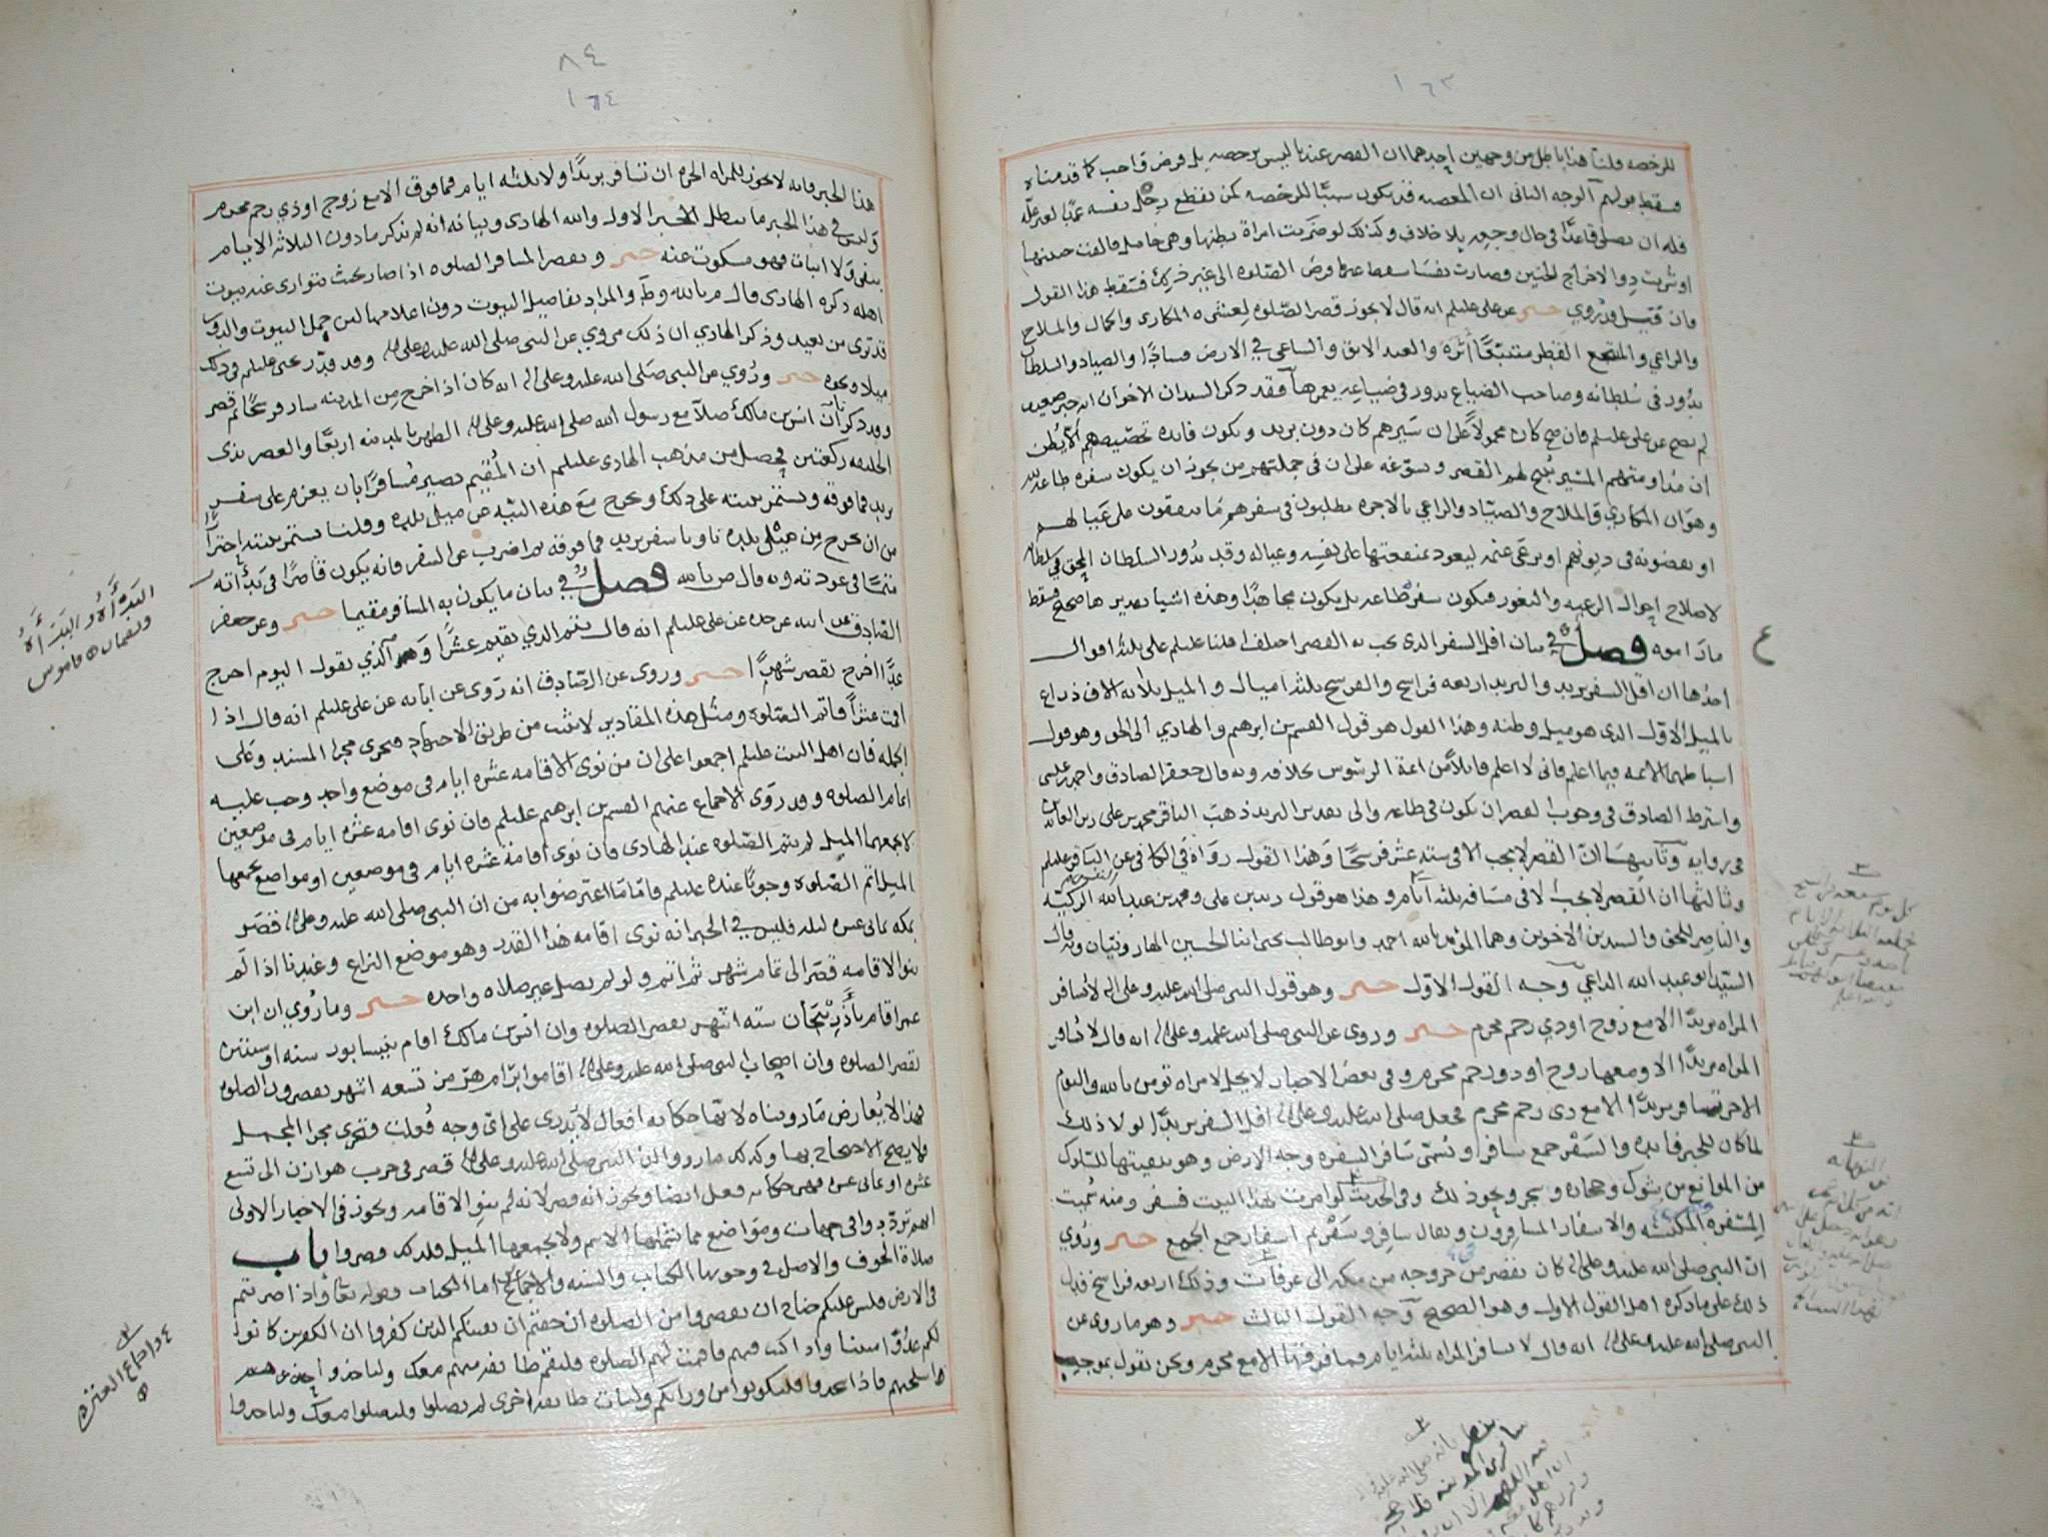 ١٦٣
للرخصه قلنا هذا باطل من وجهين احدهما ان القصر عندنا ليس برخصه بل فرض واجب كما قدمناه
فسقط قولهم الوجه الثاني ان المعصيه قد يكون سببًا للرخصه كمن يقطع رجل نفسه عمدًا لغير علّه
فله ان يصلي قاعدًا في حال وجعه بلا خلاف وكذلك لو ضربت امراة بطنها وهي حامل فالقت جنينها
او شربت دوا لاخراج الجنين فصارت نفسًا سقط عنها فرض الصّلوه الى غير ذلك فسقط هذا القول
وان قيل قد رُوي خبر عن علي عليلم انه قال لا يجوز قصر الصّلوه لعشره المكاري والجمال والملاح
والراعي والمنتجع القطر متتبّعًا أثره والعبد الابق والساعي في الارض فسادًا والصياد والسلطان
يدور في سُلطانه وصاحب الضياع يدور في ضياعه يعمرها فقد ذكر السيدان الاخوان انه خبر ضعيف
لم يصح عن علي عليلم فان صح كان محمولاً على ان سَيرهم كان دون بريد ويكون فايده تخصيصهم ألاّ يُظن
ان مداومتهم المسير يُبيح لهم القصر وسوّغه على ان في جملتهم من يجوز ان يكون سفره طاعه لله
وهو ان المكاري والملاح والصيّاد والراعي بالاجره يطلبون في سفرهم ما ينفقون على عيالهم
او يقضونه في ديونهم او يرعى غنمه ليعود بمنفعتها على نفسه وعياله وقد يدور السلطان المحق في سلطانه
لاصلاح احوال الرعيه والثغور فيكون سفر طاعه بل يكون مجاهدًا وهذه اشيا تقديرها صحيح فسقط
ما داموه فصل في بيان اقل السفر الذي يجب به القصر اختلف اهلنا عليلم على ثلثه اقوال
احدُها ان اقل السفر بريد والبريد اربعه فراسخ والفرسخ ثلثة اميال والميل ثلاثه الاف ذراع
بالميل الاوّل الذي هو ميل وطنه وهذا القول هو قول القسم بن ابرهيم والهادي الى الحق وهو قول
اسباطهما الائمه فيما اعلم فاني لا اعلم قائلاً من ائمة الرسوس بخلافه وبه قال جعفر الصادق واحمد بن عيسى
واشترط الصادق في وجوب القصر ان يكون في طاعه والى تقدير البريد ذهب الباقر محمد بن علي زين العابدين
في روايه وثانيها انّ القصر لا يجب الا في سته عشر فرسخًا وهذا القول رواه في الكافي عن الباقر عليلم
وثالثها ان القصر لا يجب الا في مسافه ثلثه أيام وهذا هو قول زيد بن علي ومحمد بن عبد الله النفس الزكيّه
والناصر للحق والسيدين الاخوين وهما المؤيد بالله احمد وابو طالب يحيى ابنا الحسين الهارونيّان وبه قال
السيّد ابو عبد الله الداعي وجه القول الاوّل خبر وهو قول النبي صلى الله عليه وعلى اله لا تسافر
المراه بريدًا الا مع زوج او ذي رحم محرم خبر وروى عن النبي صلى الله عليه وعلى اله انه قال لا تُسافر
المراه بريدًا الا ومعها زوج او ذو رحم محرم وفي بعض الاخبار لا يحل لامراه تومن بالله واليوم
الاخر تسافر بريدًا الا مع ذي رحم محرم فجعل صلى الله عليه وعلى اله اقل السفر بريدًا لولا ذلك
لما كان للخبر فايده والسَفْر جمع سافر ويُسمّى سَافر السفره وجه الارض وهو تنقيتها للسّلوك
من الموانع من شوك وحجاره وشجر ونحو ذلك وفي الحديث لو امرت بهذا البيت فسفر ومنه سُميت
المِسْفره المكنسه والاسفار المسافرون ويقال سافر وسَفْر ثم اسفار جمع الجمع خبر ورُوي
انّ النبي صلى الله عليه وعلى اله كان يقصر من خروجه من مكه الى عرفات وذلك اربعه فراسخ فدل
ذلك على ما ذكره اهل القول الاول وهو الصحيح وجه القول الثالث خبر وهو ما روي عن
النبي صلى الله عليه وعلى اله انه قال لا تسافر المراه ثلثه ايام فما فوقها الا مع محرم ونحن نقول بموجب
٤
٨٤
١٦٤
هذا الخبر فانه لا يجوز للمراه الحره ان تسافر بريدًا ولا ثلثه ايام فما فوق الا مع زوج او ذي رحم محرم
وليس في هذا الخبر ما يبطل الخبر الاول والله الهادي وبيانه انه لم يذكر ما دون الثلاثه الايام
بنفي ولا اثبات فهو مسكوت عنه خبر ويقصر المسافر الصلوه اذا صار بحيث تتوارى عنه بيوت
اهله ذكره الهادي قال م بالله وط والمراد تفاصيل البيوت دون اعلامها ليس جمل البيوت والدور
قد ترى من بعيد وذكر الهادي ان ذلك مروي عن النبي صلى الله عليه وعلى اله وقد قدّر يحيى عليلم في ذلك
ميلا ونحوه خبر ورُوي عن النبي صلى الله عليه وعلى اله انه كان اذا خرج من المدينه سار فرسخًا ثم قصر
وقد ذكر انّ انس بن مالك صلا مع رسول الله صلى الله عليه وعلى اله الظهر بالمدينه اربعًا والعصر بذى
الحليفه ركعتين فحصل من مذهب الهادي عليلم ان المُقيم يصير مُسافرًا بان يعزم على سفر
بريد فما فوقه وتستمر نيته على ذلك ويخرج مع هذه النيّه عن ميل بلده وقلنا تستمر نيته احترازًا
من ان يخرج من ميل بلده ناويا سفر بريد فما فوقه ثم اضرب عن السفر فانه يكون قاصرًا في بَدْأته
متمًا في عودته وبه قال ص بالله فصل في بيان ما يكون به المسافر مقيما خبر وعن جعفر
الصّادق عن ابيه عن جده عن علي عليلم انه قال يتم الذي يقيم عشرًا وهو الذي يقول اليوم اخرج
غدًا اخرج يقصر شهرًا خبر وروى عن الصّادق انه رَوى عن ابائه عن علي عليلم انه قال اذا
اقمت عشرًا فاتم الصّلوه ومثل هذه المقادير لا تثبت من طريق الاجتهاد فتجري مجرا المسند وعلى
الجمله فان اهل البيت عليلم اجمعوا على ان من نوى الاقامه عشره ايام في موضع واحد وجب عليه
اتمام الصلوه وقد رَوى الاجماع عنهم القسم بن ابرهيم عليلم فان نوى اقامه عشره ايام في موضعين
لا يجمعهما الميل لم يتم الصّلوه عند الهادي فان نوى اقامه عشره ايام في موضعين او مواضع يجمعها
الميل اتم الصّلوه وجوبًا عنده عليلم فامّا ما اعترضوا به من ان النبي صلى الله عليه وعلى اله قصَر
بمكه ثماني عشره ليله فليس في الخبر انه نوى اقامه هذا القدر وهو موضع النزاع وعندنا اذا لم
ينو الاقامه قصَر الى تمام شهر ثم اتم ولو لم يصل غير صلاه واحده خبر وما رُوي ان ابن
عمر اقام بأذربيجان سته اشهر يقصر الصلوه وان انس بن مالك اقام بنيسابور سنه او سنتين
يقصر الصلوه وان اصحاب النبي صلى الله عليه وعلى اله اقاموا برام هرمز تسعه اشهر يقصرون الصلوه
فهذا لا يُعارض ما رويناه لانها حكايه افعال لا يُدرى على ايّ وجه فُعلت فتجري مجرا المجمل
فلا يصح الاحتجاج بها وكذلك ما رووا ان النبي صلى الله عليه وعلى اله قصر في حرب هوازن الى تسع
عشره او ثماني عشره فهو حكايه فعل ايضا ويجوز انه قصر لانه لم ينوِ الاقامه ويجوز في الاخبار الاولى
انهم ترددوا في جهات ومواضع مما يشملها الاسم ولا يجمعها الميل فلذلك قصروا باب
صلاة الخوف والاصل في وجوبها الكتاب والسنه والاجماع اما الكتاب فقوله تعالى واذا ضربتم
في الارض فليس عليكم جناح ان تقصروا من الصلوه ان خفتم ان يفتنكم الذين كفروا ان الكفرين كانوا
لكم عدُوًّا مبينا واذا كنت فيهم فاقمت لهم الصلوه فلتقم طائفه منهم معك ولياخذوا
اسلحتهم فاذا سجدوا فليكونوا من ورائكم ولتات طائفه اخرى لم يصلوا فليصلوا معك ولياخذوا